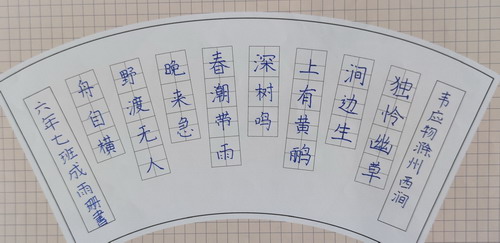 韦应物滁州西涧
独怜幽草
涧边生
上有黄鹂
深树鸣
春潮带雨
晚来急
野渡无人
舟自横
六年七班成雨珊書